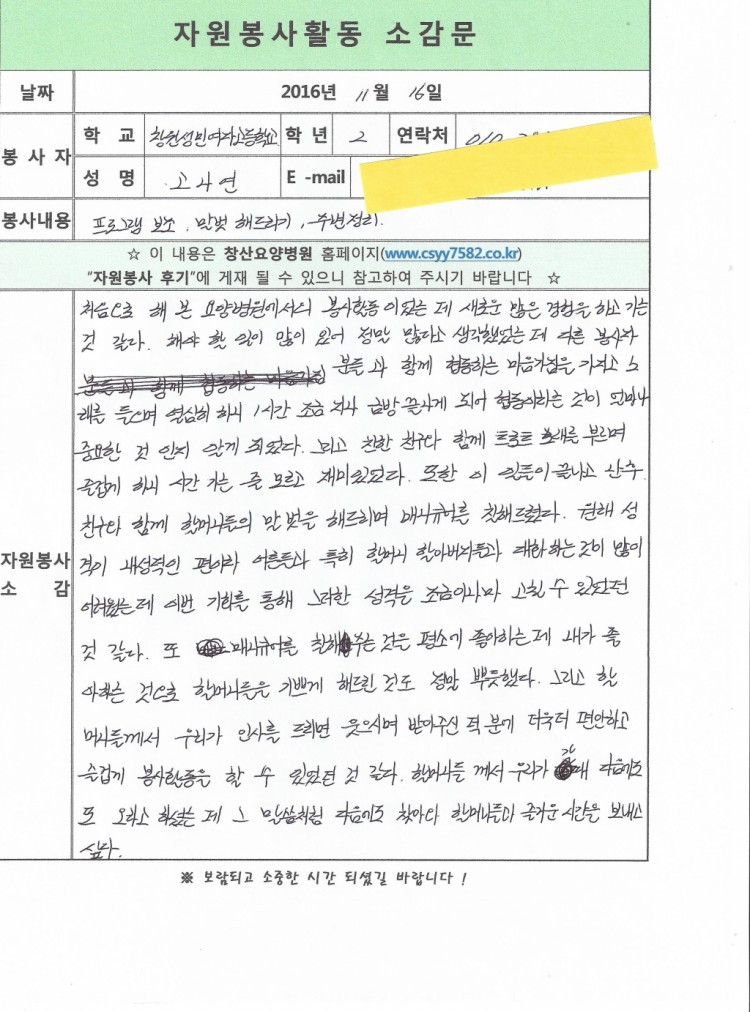 자원봉사활동 소감문
날짜 2016년 11월 16일
봉사자 학교 창원성민여자고등학교 학년 2 연락처 010
성명 고사연 E-mail
봉사내용 프로그램 보조, 말벗 해드리기, 주변정리.
☆ 이 내용은 창산요양병원 홈페이지(www.csyy7582.co.kr)
“자원봉사 후기”에 게재 될 수 있으니 참고하여 주시기 바랍니다 ☆
자원봉사 소감
처음으로 해 본 요양병원에서의 봉사활동이었는 데 새로운 많은 경험을 하고 가는
것 같다. 해야 할 일이 많이 있어 정말 많다고 생각했었는 데 다른 봉사자
분들과 함께 협동하는 마음가짐 분들과 함께 협동하는 마음가짐을 가지고 노
래를 들으며 열심히 하니 1시간 조금 지나 금방 끝나게 되어 협동이라는 것이 얼마나
중요한 것 인지 알게 되었다. 그리고 친한 친구와 함께 트로트 노래를 부르며
즐겁게 하니 시간 가는 줄 모르고 재미있었다. 또한 이 일들이 끝나고 난 후.
친구와 함께 할머니들의 말 벗을 해드리며 매니큐어를 칠해드렸다. 원래 성
격이 내성적인 편이라 어른들과 특히 할머니 할아버지들과 대화하는 것이 많이
어려웠는 데 이번 기회를 통해 그러한 성격을 조금이나마 고칠 수 있었던
것 같다. 또 매니큐어를 칠해주는 것은 평소에 좋아하는 데 내가 좋
아하는 것으로 할머니들을 기쁘게 해드린 것도 정말 뿌듯했다. 그리고 할
머니들께서 우리가 인사를 드리면 웃으시며 받아주신 덕분에 더욱더 편안하고
즐겁게 봉사활동을 할 수 있었던 것 같다. 할머니들 께서 우리가 갈때 다음에도
또 오라고 하셨는 데 그 말씀처럼 다음에도 찾아와 할머니들과 즐거운 시간을 보내고
싶다.
※ 보람되고 소중한 시간 되셨길 바랍니다 !